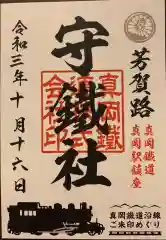 芳賀路
真岡鐵道
真岡駅鎮座
守鐵社
真岡鐵
令和三年十月十六日
真岡鐵道沿線
ご朱印めぐり